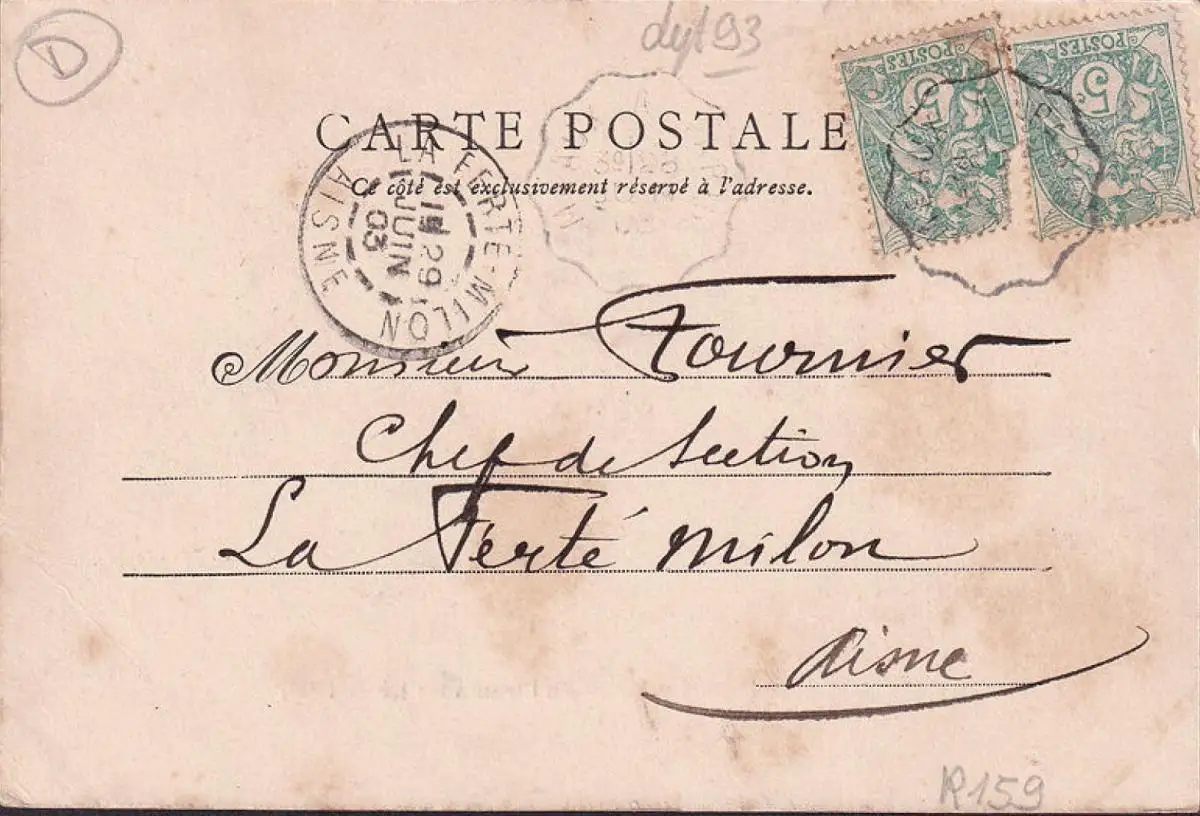 D
CARTE POSTALE
Ce côté est exclusivement réservé à l'adresse.
POSTES
5c
POSTES
5c
LA FERTÉ-MILON
29
JUIN
03
AISNE
Monsieur Fournier
Chef de Section
La Ferté Milon
Aisne
R159